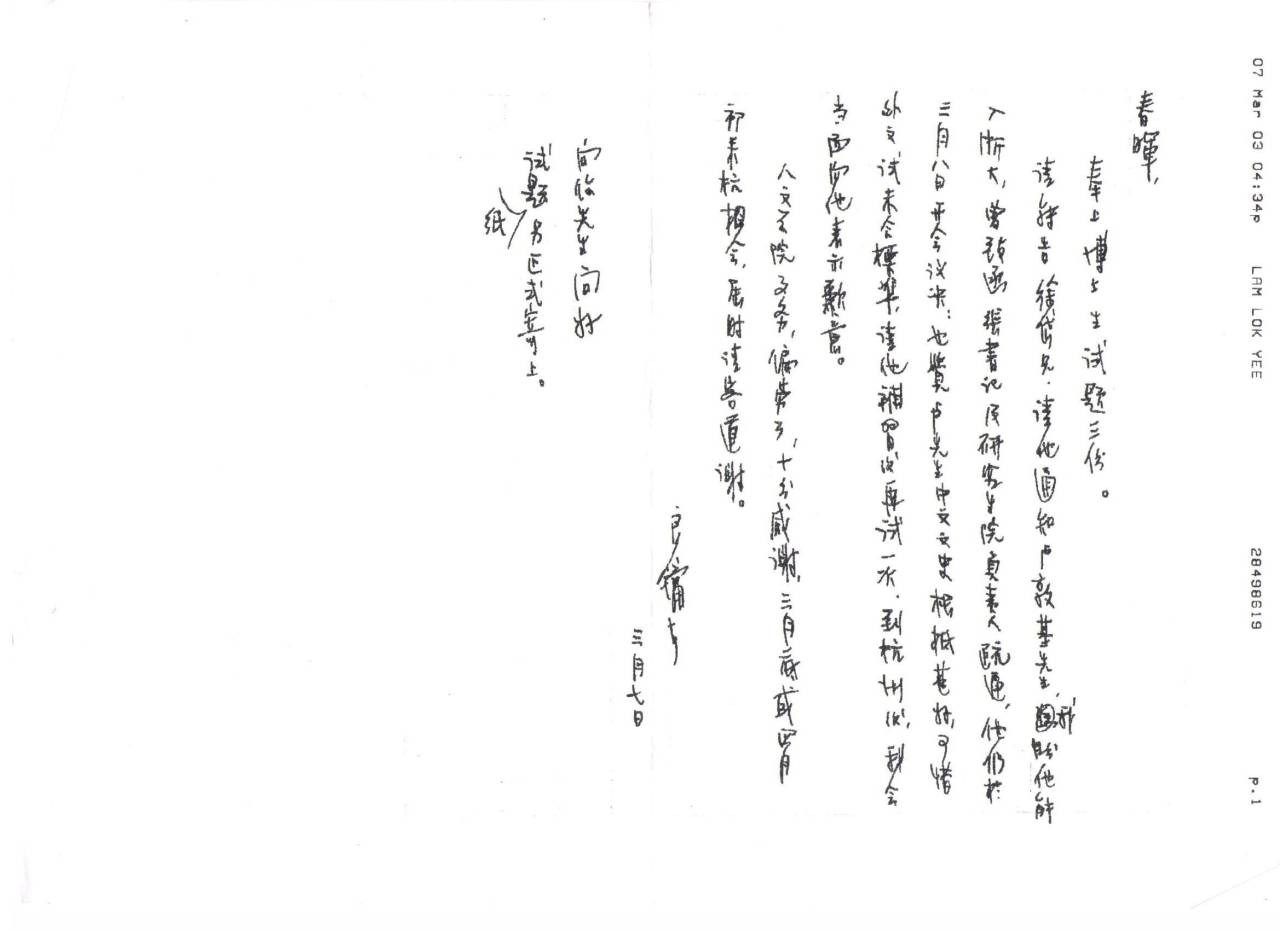 07 Mar 03 04:34p LAM LOK YEE 28498619 p.1
春暉，
奉上博士生试题三份。
请转告徐岱兄，请他通知卢敦基先生，我固盼他能
入浙大，曾致函张书记及研究生院负责人疏通，他们於
三月八日开会议决：也赞卢先生中文文史根抵甚好，可惜
外文试未合標準，请他補習後再试一次．到杭州後，我会
当面向他表示歉意。
人文学院文务，偏劳了，十分感谢，三月底或四月
初来杭相会，届时请客道谢。
良鏞
三月七日
向徐先生问好
试题纸另正式寄上。